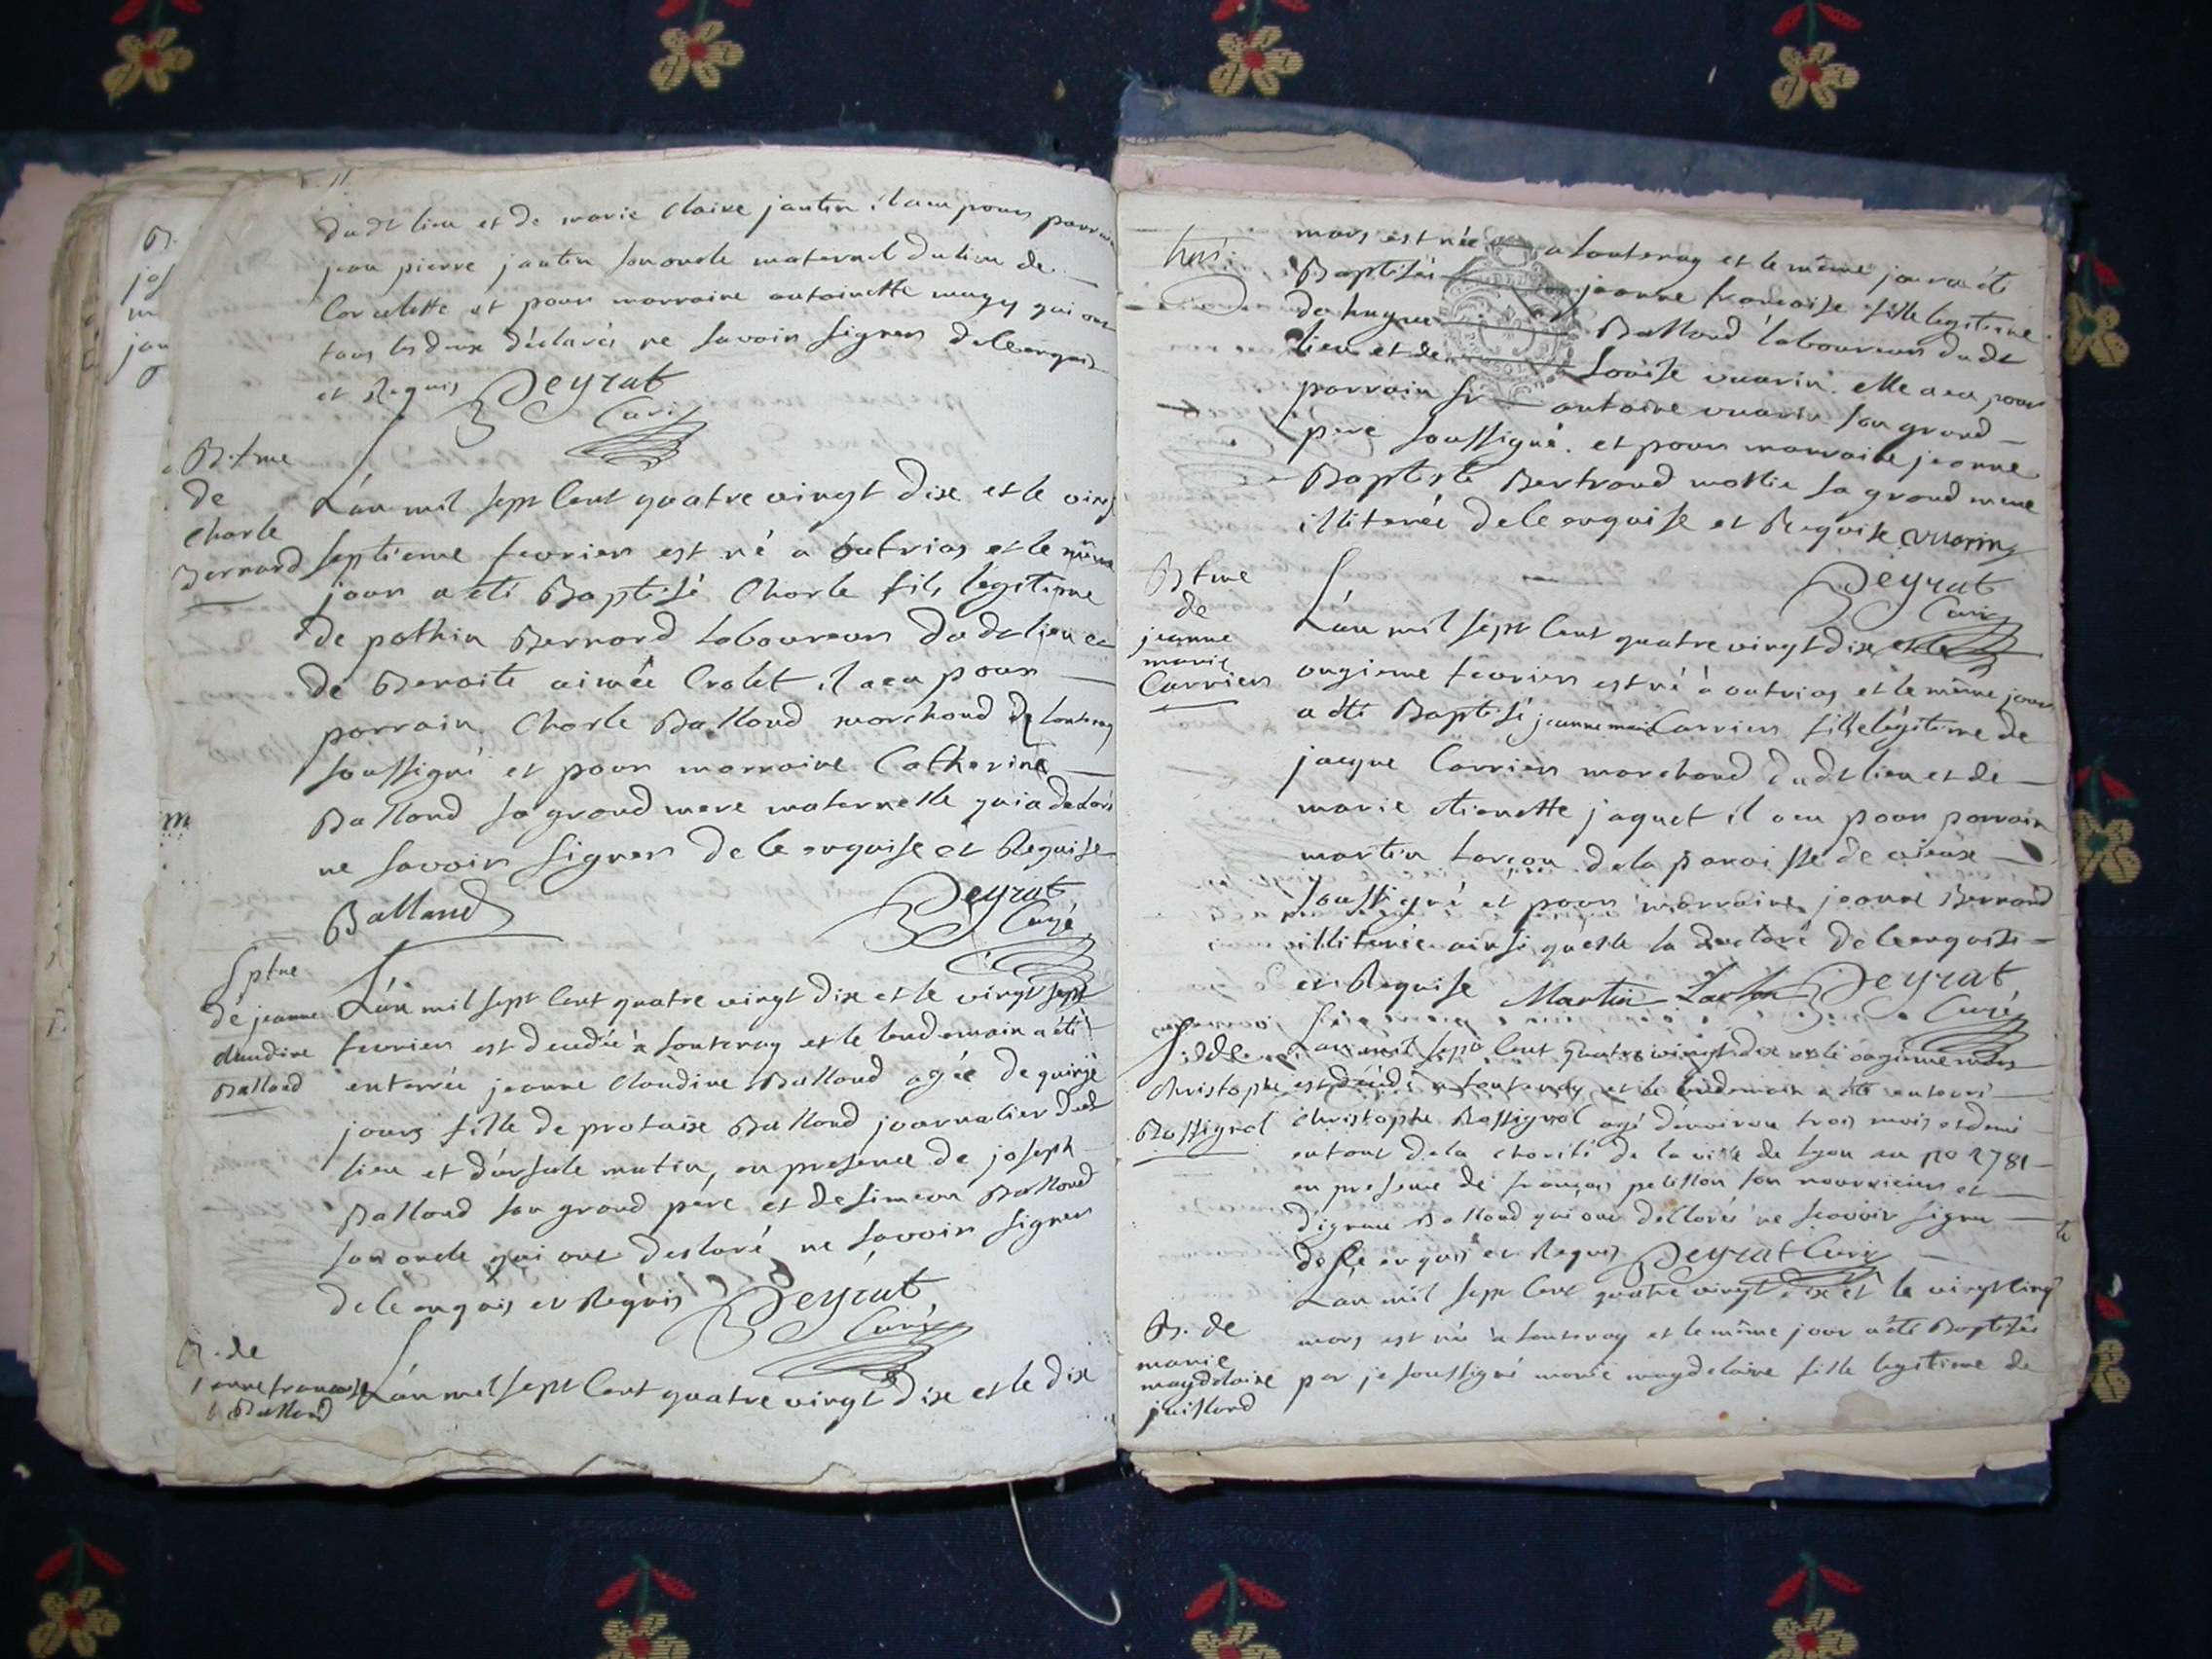 dudt lieu et de marie Claire jantin il a eu pour parrain
jean pierre jantin son oncle maternel du lieu de
Corcelette et pour marraine antoinette mugy qui ont
tous les deux déclarés ne savoir signer de ce enquis
et Requis Peyrat
Curé
B.tme
de
Charle
Bernard
L'an mil sept Cent quatre vingt dix et le vingt
septieme fevrier est né a outrias et le même
jour a eté Baptisé Charle fils legitime
de pothin Bernard Laboureur dudt lieu et
de Benoite aimée Crolet il a eu pour
parrain Charle Balland marchand de
soussigné et pour marraine Catherine
Balland sa grand mere maternelle qui a declaré
ne savoir signer de ce enquise et Requise
Balland Peyrat
Curé
Sptre
de jeanne
claudine
Balland
L'an mil sept Cent quatre vingt dix et le vingt sept
fevrier est decedée à Lontenay et le lendemain a été
enterrée jeanne Claudine Balland agée de quinze
jours fille de protaise Balland journalier dudt
lieu et d'ursule matin, en presence de joseph
Balland son grand pere et de simeon Balland
son oncle qui ont declaré ne savoir signer
de ce enquis et Requis Peyrat
Curé
B. de
jeanne francoise
Balland
L'an mil sept Cent quatre vingt dix et le dix
mars est née a Lontenay et le même jour a été
Baptisée jeanne francoise fille legitime
de hugue Balland laboureur dudt
lieu et de Louise vuarin. elle a eu pour
parrain Sr antoine vuarin son grand
pere soussigné. et pour marraine jeanne
Baptiste Bertrand mollie sa grand mere
illiterée de ce enquise et Requise vuarin
Peyrat
Curé
B.tme
de
jeanne
marie
Carrier
L'an mil sept Cent quatre vingt dix et le
onzieme fevrier est né à outrias et le même jour
a été Baptisé jeanne marie Carrier fille legitime de
jacque Carrier marchand dudt lieu et de
marie etienette jaquet il a eu pour parrain
martin de la paroisse de vieux
soussigné et pour marraine jeanne Bernard
illiterée ainsi qu'elle la declaré de ce enquise
et Requise Martin Peyrat
Curé
christophe
Rossignol
L'an mil sept Cent quatre vingt dix et le onzieme mars
est décédé a Lontenay et le lendemain a été enterré
christophe Rossignol agé d'environ trois mois et demi
enfant de la charité de la ville de Lyon au no 2781
en presence de françois petillon son nourricier et
d'ignace Balland qui ont declarés ne scavoir signer
de ce enquis et Requis Peyrat Curé
B. de
marie
magdelaine
juilland
L'an mil sept Cent quatre vingt dix et le vingt cinq
mars est née à Lontenay et le même jour a été Baptisée
par je soussigné marie magdelaine fille legitime de